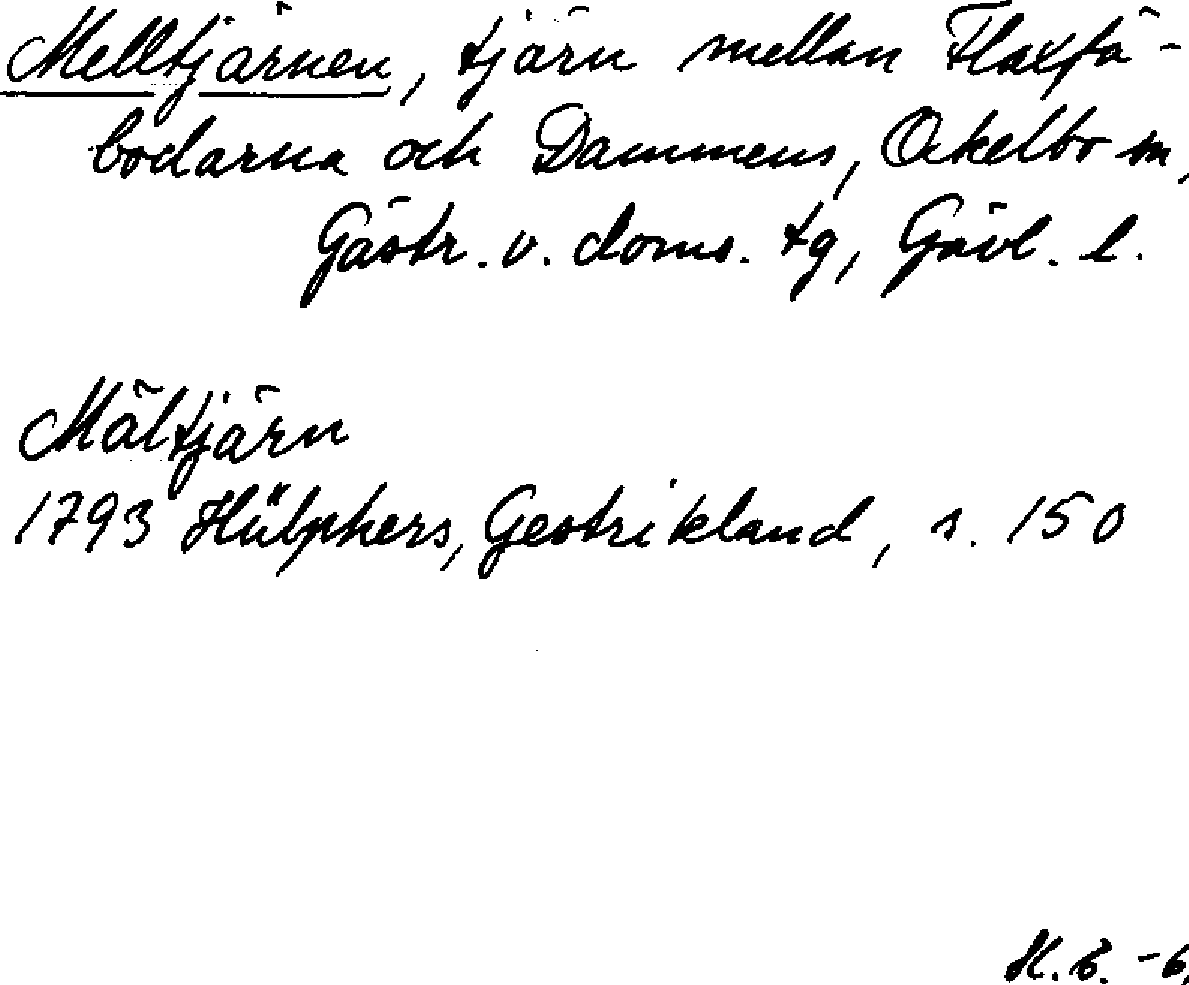 Melltjärnen, tjärn mellan Flaxfä-
bodarna och Dammens, Ockelbo sn,
Gästr. v. doms. tg, Gävl. l.
Mältjärn
1793 Hülphers, Gestrikland, s. 150
H.B. -6